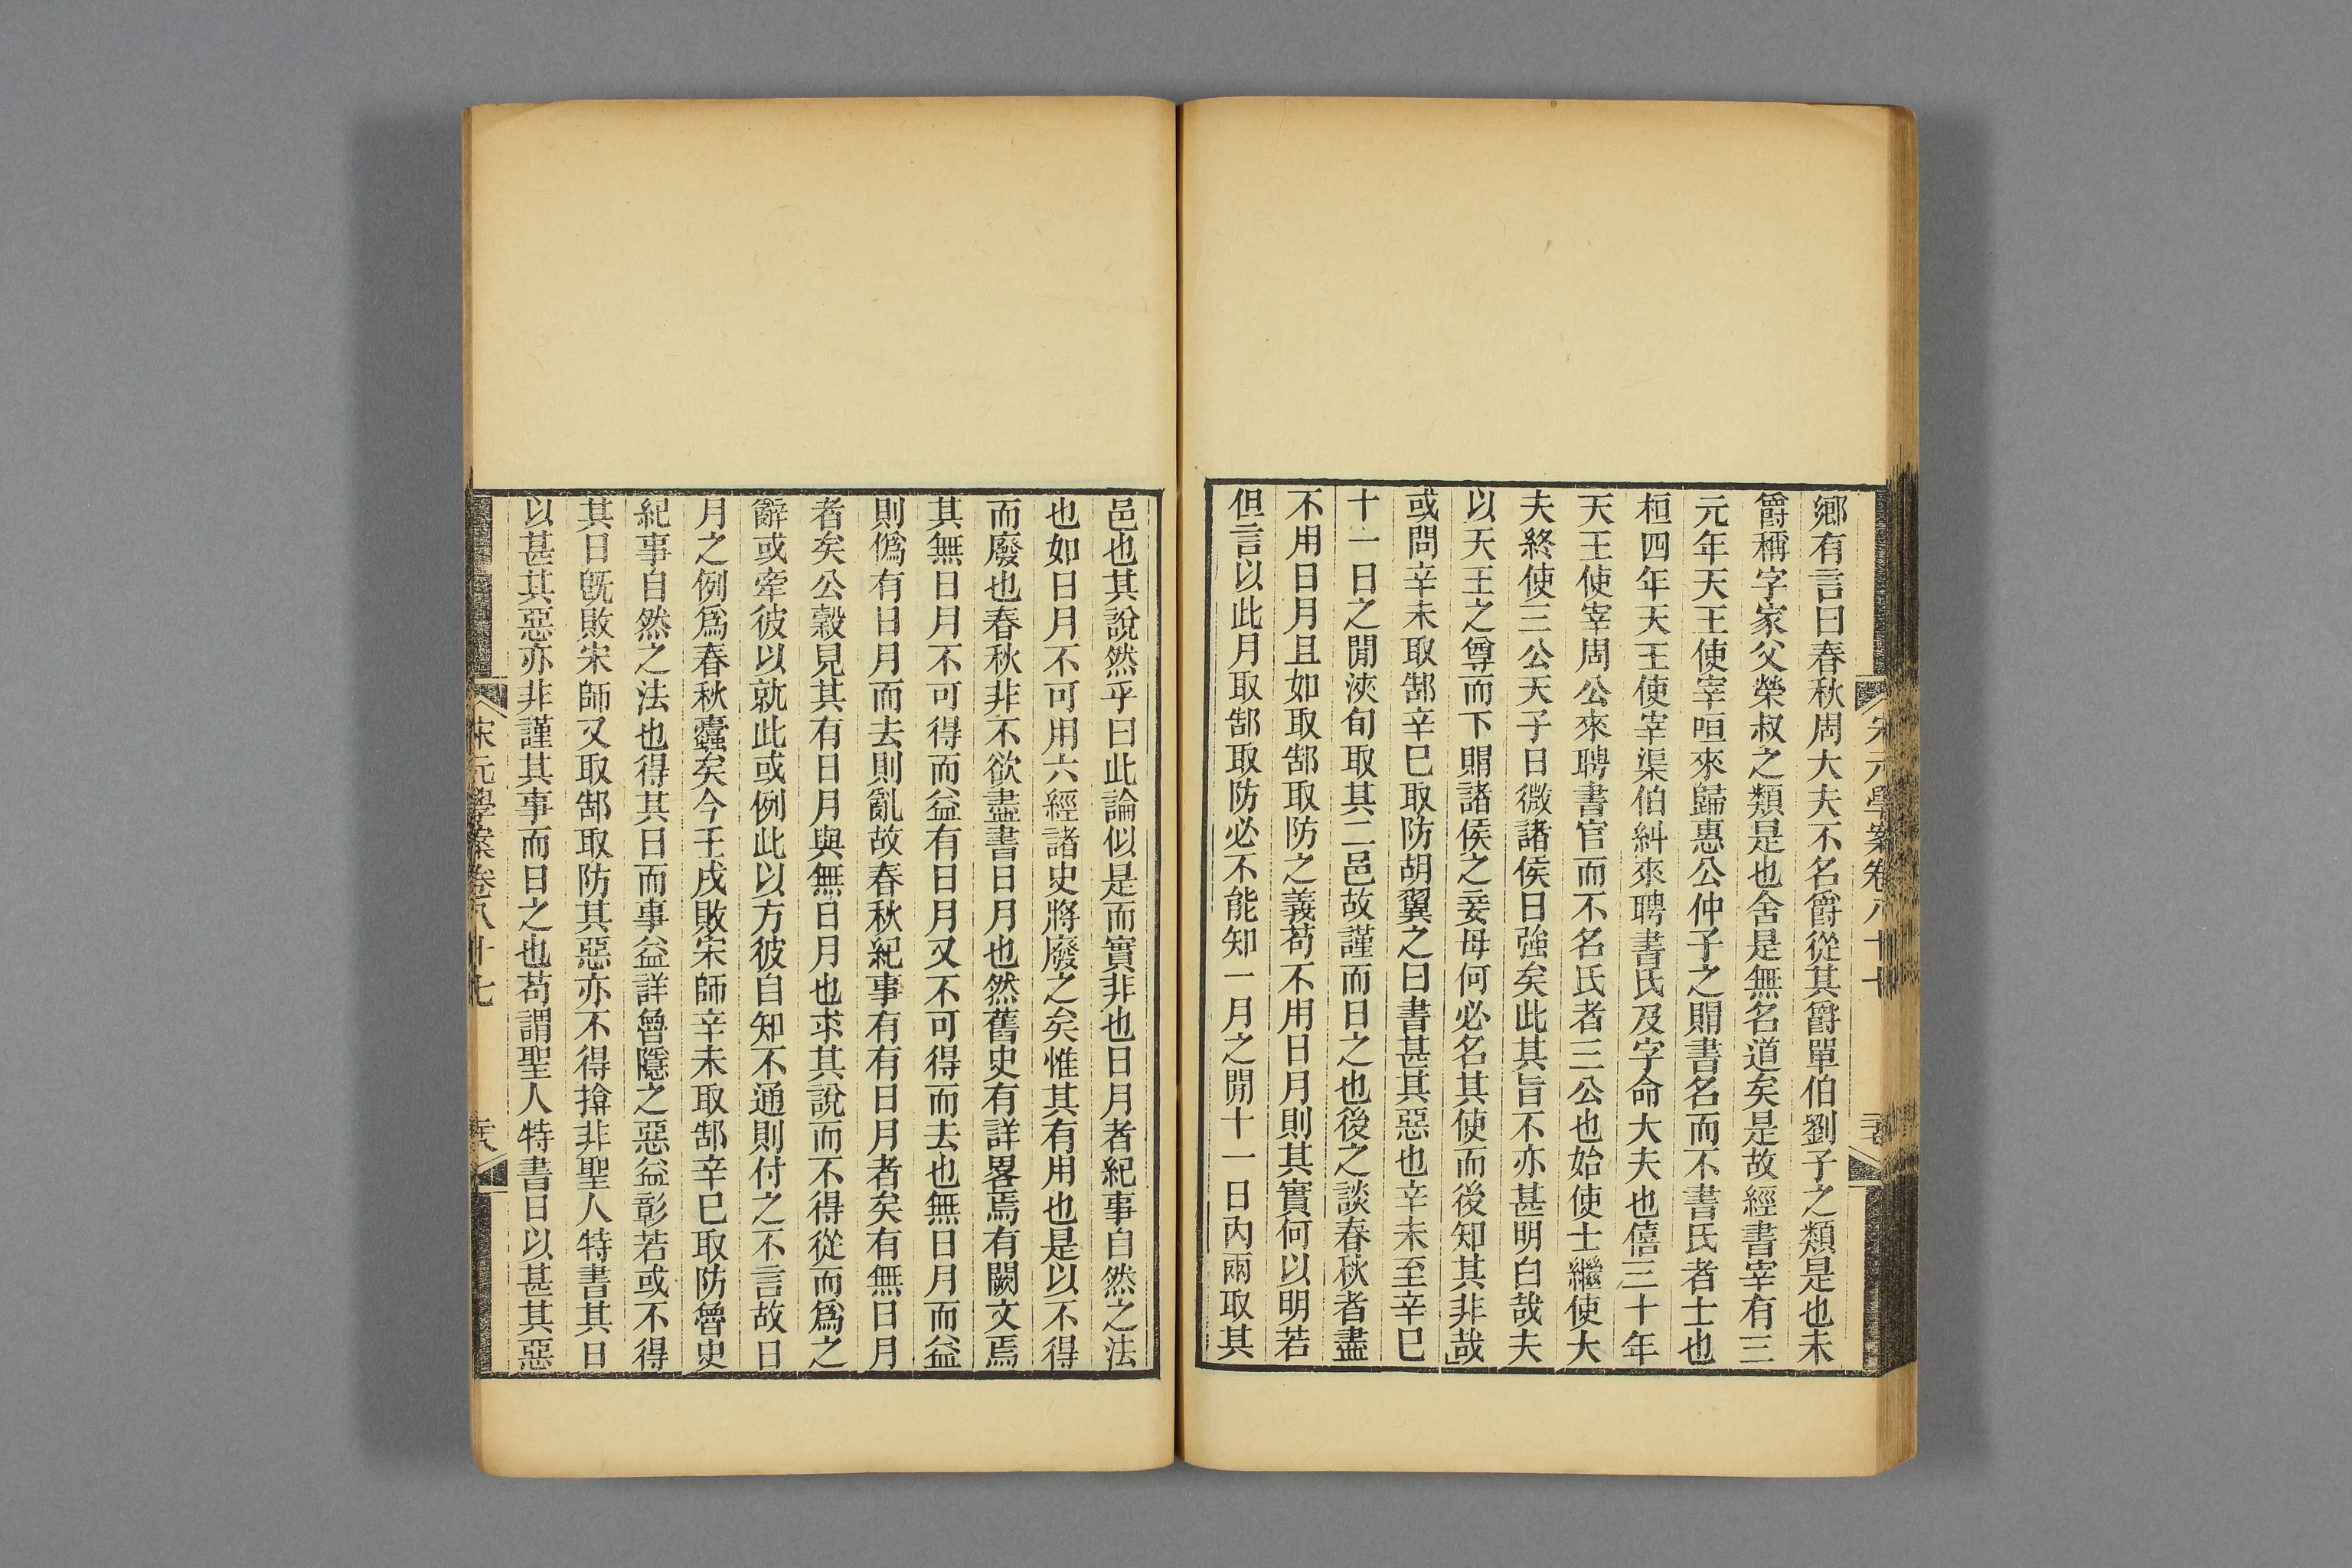 宋元學案卷八十七
鄉有言曰春秋周大夫不名爵從其爵單伯劉子之類是也未
爵稱字家父榮叔之類是也舍是無名道矣是故經書宰有三
元年天王使宰咺來歸惠公仲子之賵書名而不書氏者士也
桓四年天王使宰渠伯糾來聘書氏及字命大夫也僖三十年
天王使宰周公來聘書官而不名氏者三公也始使士繼使大
夫終使三公天子日微諸侯日強矣此其旨不亦甚明白哉夫
以天王之尊而下賵諸侯之妾母何必名其使而後知其非哉
或問辛未取郜辛巳取防胡翼之曰書甚其惡也辛未至辛巳
十一日之閒浹旬取其二邑故謹而日之也後之談春秋者盡
不用日月且如取郜取防之義苟不用日月則其實何以明若
但言以此月取郜取防必不能知一月之閒十一日內兩取其
邑也其說然乎曰此論似是而實非也日月者紀事自然之法
也如日月不可用六經諸史將廢之矣惟其有用也是以不得
而廢也春秋非不欲盡書日月也然舊史有詳畧焉有闕文焉
其無日月不可得而益有日月又不可得而去也無日月而益
則僞有日月而去則亂故春秋紀事有有日月者矣有無日月
者矣公穀見其有日月與無日月也求其說而不得從而爲之
辭或牽彼以就此或例此以方彼自知不通則付之不言故日
月之例爲春秋蠹矣今壬戌敗宋師辛未取郜辛巳取防魯史
紀事自然之法也得其日而事益詳魯隱之惡益彰若或不得
其日旣敗宋師又取郜取防其惡亦不得揜非聖人特書其日
以甚其惡亦非謹其事而日之也苟謂聖人特書日以甚其惡
宋元學案卷八十七